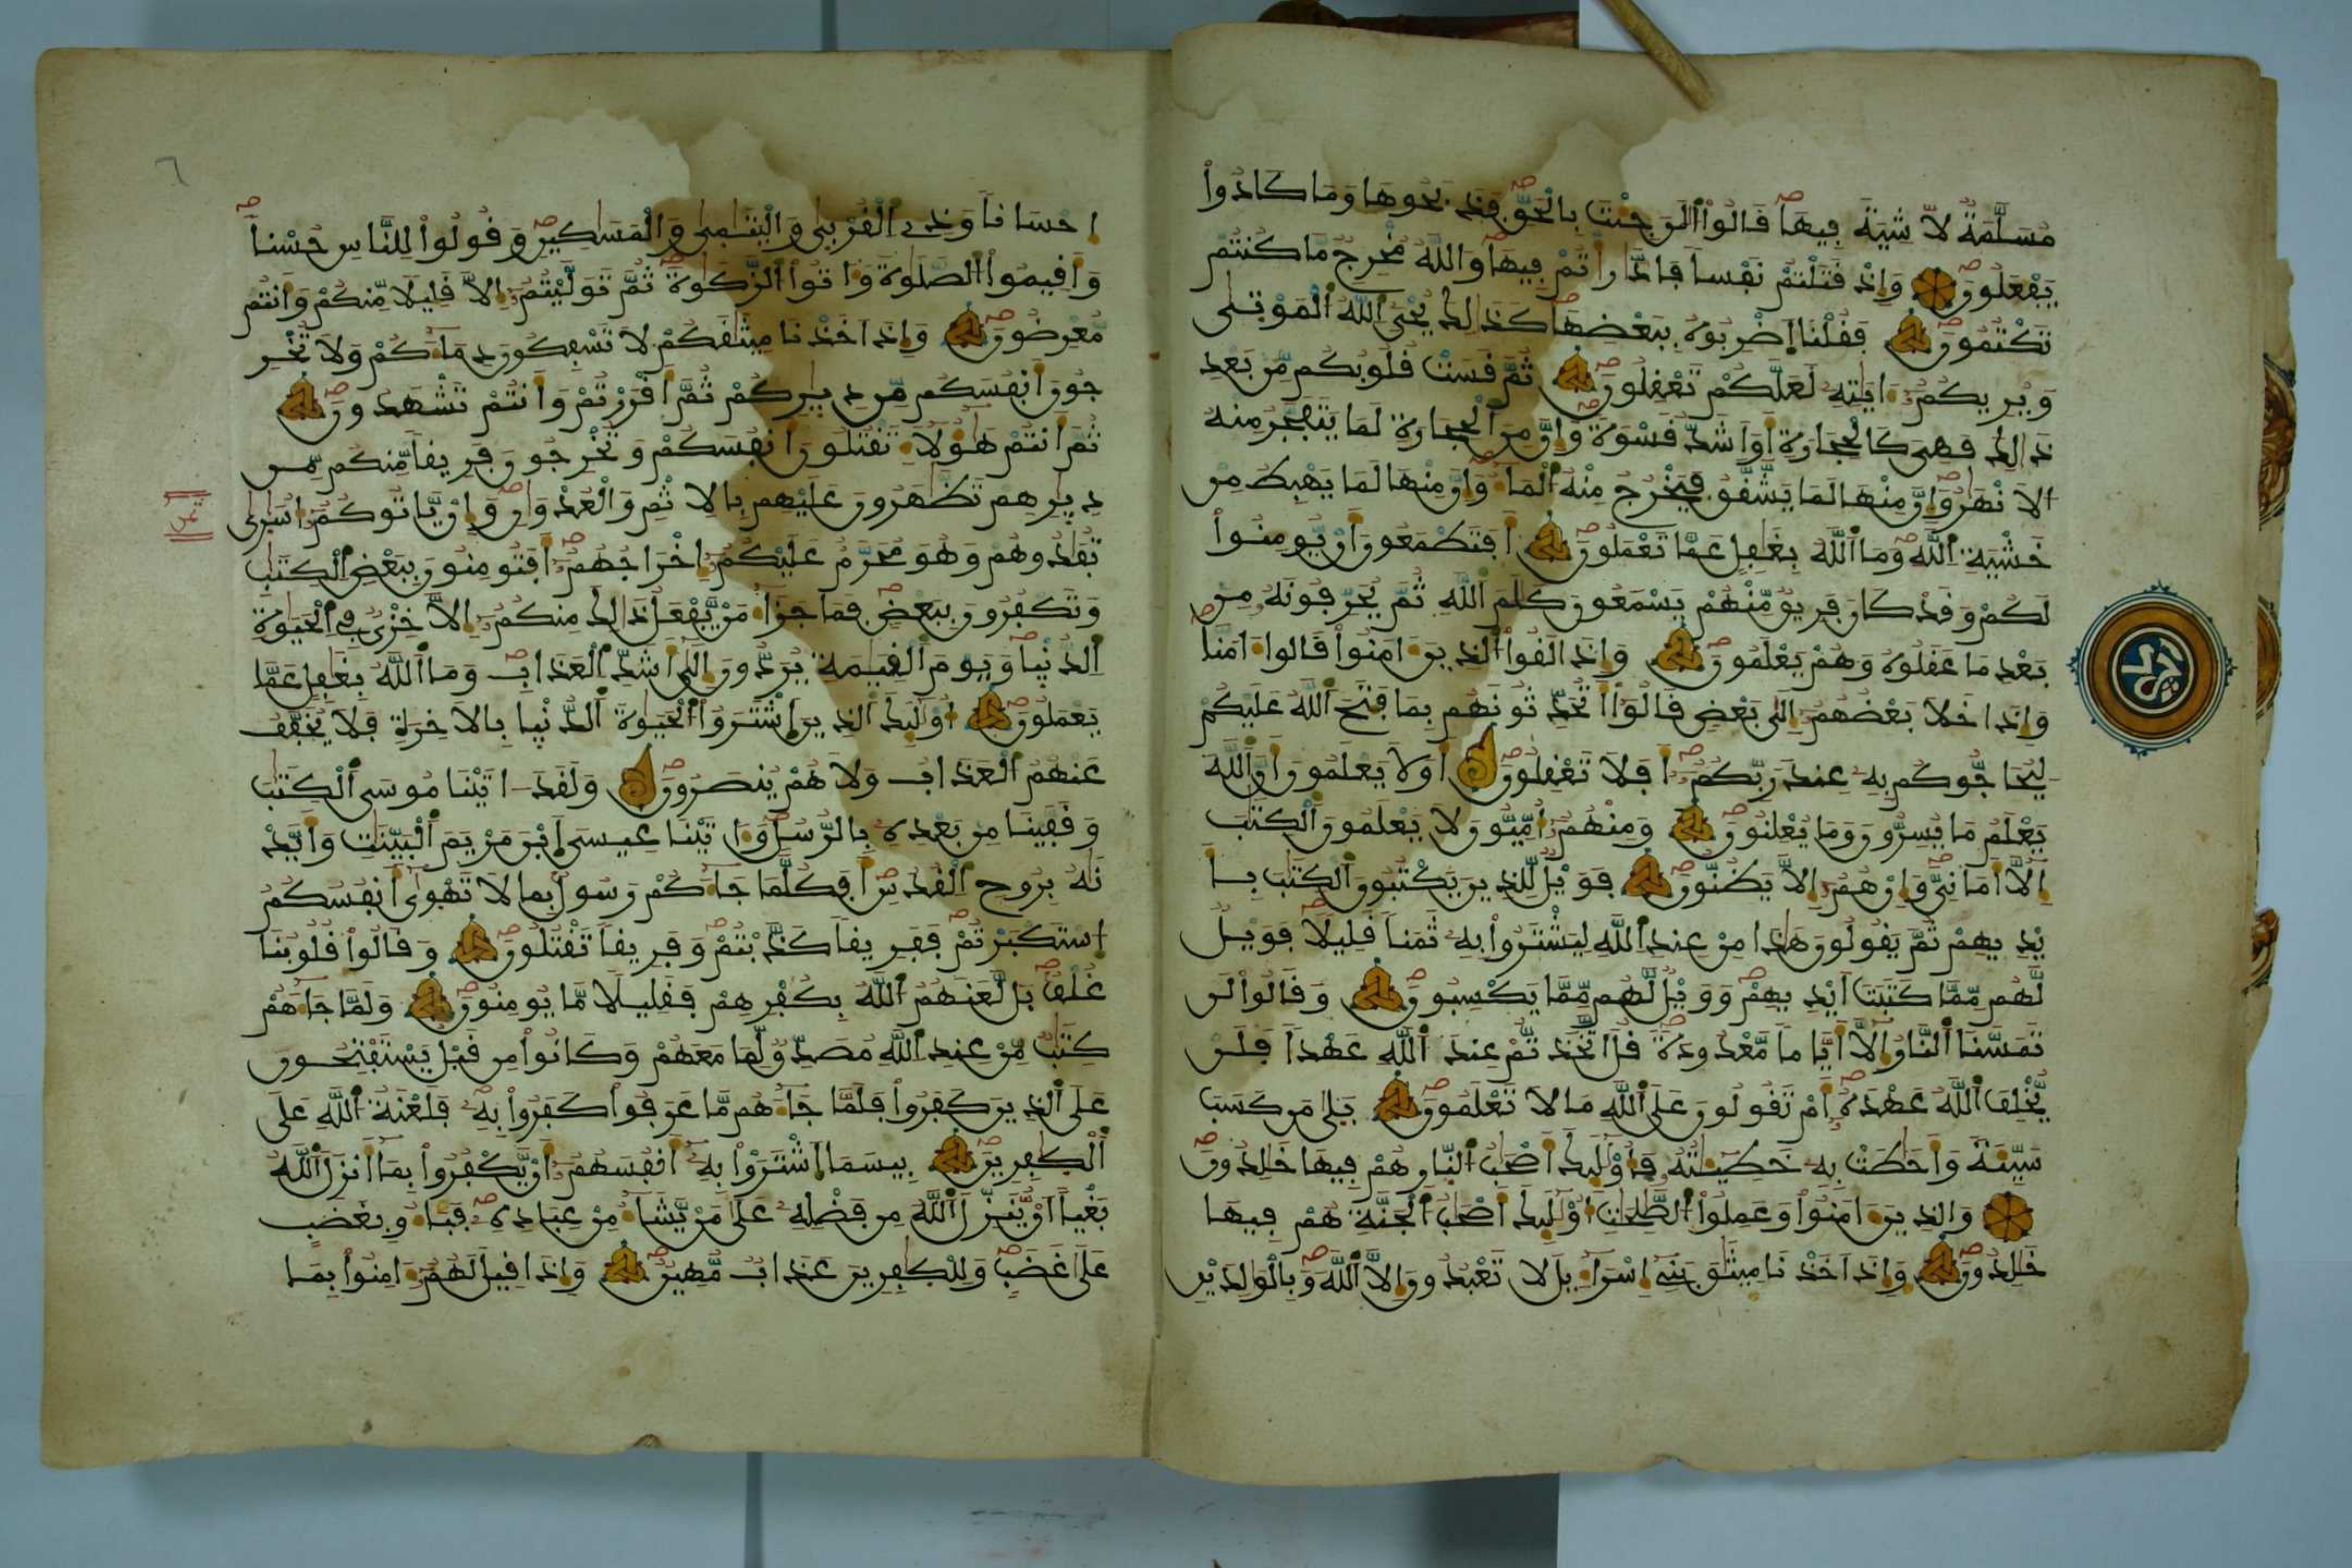 مسلمة لا شية فيها قالوا الن جئت بالحق فذبحوها وما كادوا
يفعلون وإذ قتلتم نفسا فادارأتم فيها والله مخرج ما كنتم
تكتمون فقلنا اضربوه ببعضها كذالك يحي الله الموتى
ويريكم ءايته لعلكم تعقلون ثم قست قلوبكم من بعد
ذالك فهي كالحجارة أو أشد قسوة وإن من الحجارة لما يتفجر منه
الانهر وإن منها لما يشقق فيخرج منه الماء وإن منها لما يهبط من
خشية الله وما الله بغفل عما تعملون أفتطمعون أن يومنوا
لكم وقد كان فريق منهم يسمعون كلم الله ثم يحرفونه من
بعد ما عقلوه وهم يعلمون وإذا لقوا الذين ءامنوا قالوا ءامنا
وإذا خلا بعضهم إلى بعض قالوا أتحدثونهم بما فتح الله عليكم
ليحاجوكم به عند ربكم أفلا تعقلون أولا يعلمون أن الله
يعلم ما يسرون وما يعلنون ومنهم أميون لا يعلمون الكتب
إلا أماني وإن هم إلا يظنون فويل للذين يكتبون الكتب بأ
يديهم ثم يقولون هاذا من عند الله ليشتروا به ثمنا قليلا فويل
لهم مما كتبت أيديهم وويل لهم مما يكسبون وقالوا لن
تمسنا النار إلا أياما معدودة قل أتخذتم عند الله عهدا فلن
يخلف الله عهده أم تقولون على الله ما لا تعلمون بلى من كسب
سيئة وأحطت به خطيئته فأولئك أصحب النار هم فيها خلدون
والذين ءامنوا وعملوا الصلحت أولئك أصحب الجنة هم فيها
خلدون وإذ أخذنا ميثق بني إسراءيل لا تعبدون إلا الله وبالوالدين
حزب
٦
إحسانا وذي القربى واليتمى والمسكين وقولوا للناس حسنا
وأقيموا الصلوة وءاتوا الزكوة ثم توليتم إلا قليلا منكم وأنتم
معرضون وإذ أخذنا ميثقكم لا تسفكون دماءكم ولا تخر
جون أنفسكم من ديركم ثم أقررتم وأنتم تشهدون
ثم أنتم هؤلاء تقتلون أنفسكم وتخرجون فريقا منكم من
ديرهم تظهرون عليهم بالاثم والعدوان وإن ياتوكم أسرى
تفدوهم وهو محرم عليكم إخراجهم أفتومنون ببعض الكتب
وتكفرون ببعض فما جزاء من يفعل ذالك منكم إلا خزي في الحيوة
الدنيا ويوم القيمة يردون إلى أشد العذاب وما الله بغفل عما
يعملون أولئك الذين اشتروا الحيوة الدنيا بالاخرة فلا يخفف
عنهم العذاب ولا هم ينصرون ولقد ءاتينا موسى الكتب
وقفينا من بعده بالرسل وءاتينا عيسى ابن مريم البينت وأيد
نه بروح القدس أفكلما جاءكم رسول بما لا تهوى أنفسكم
استكبرتم ففريقا كذبتم وفريقا تقتلون وقالوا قلوبنا
غلف بل لعنهم الله بكفرهم فقليلا ما يومنون ولما جاءهم
كتب من عند الله مصدق لما معهم وكانوا من قبل يستفتحون
على الذين كفروا فلما جاءهم ما عرفوا كفروا به فلعنة الله على
الكفرين بيسما اشتروا به أنفسهم أن يكفروا بما أنزل الله
بغيا أن ينزل الله من فضله على من يشاء من عباده فباءو بغضب
على غضب وللكفرين عذاب مهين وإذا قيل لهم ءامنوا بما
ثمن